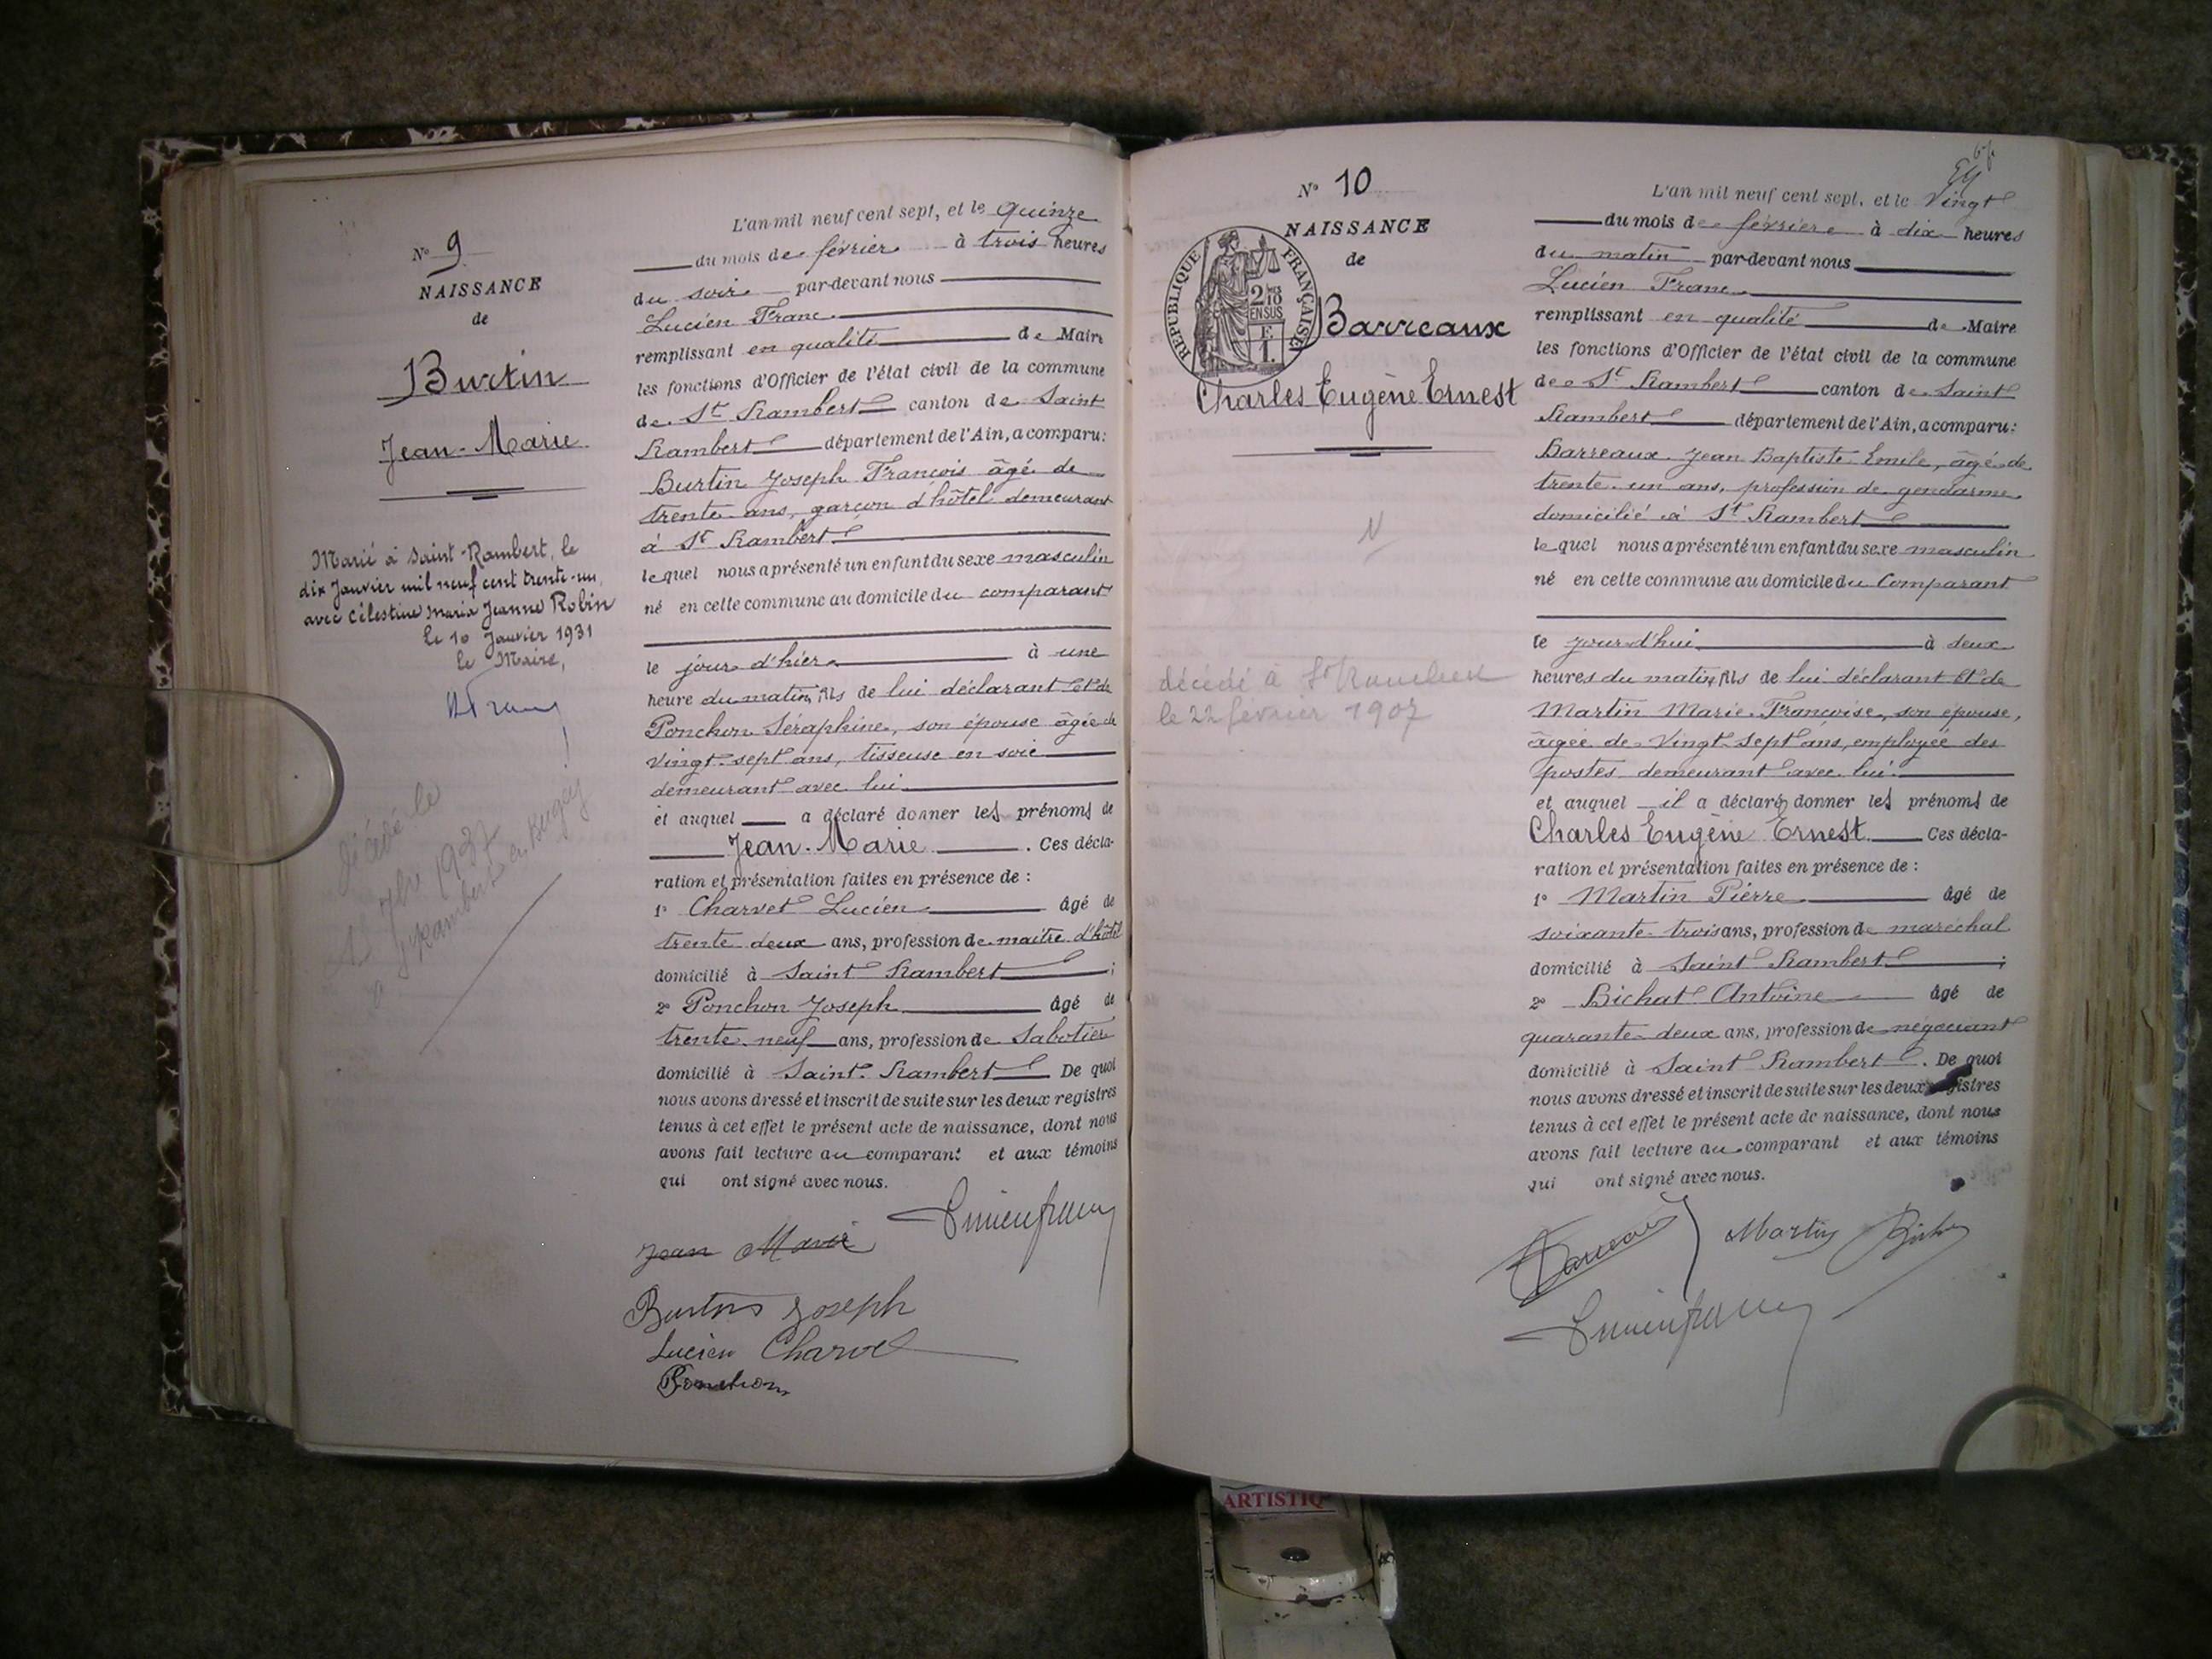 N° 9
NAISSANCE
de
Burtin
Jean-Marie
Marié à Saint-Rambert, le
dix Janvier mil neuf cent trente-un,
avec Célestine Maria Jeanne Robin
le 10 Janvier 1931
le Maire,
décédé le
7bre 1937
à St Rambert en Bugey
L'an mil neuf cent sept, et le quinze
du mois de février à trois heures
du soir par-devant nous
Lucien Franc
remplissant en qualité de Maire
les fonctions d'Officier de l'état civil de la commune
de St Rambert canton de Saint
Rambert département de l'Ain, a comparu:
Burtin Joseph François âgé de
trente ans, garçon d'hôtel demeurant
à St Rambert
lequel nous a présenté un enfant du sexe masculin
né en cette commune au domicile du comparant
le jour d'hier à une
heure du matin, fils de lui déclarant et de
Ponchon Séraphine, son épouse âgée de
vingt-sept ans, tisseuse en soie
demeurant avec lui
et auquel a déclaré donner les prénoms de
Jean-Marie. Ces décla-
ration et présentation faites en présence de :
1° Charvet Lucien âgé de
trente deux ans, profession de maître d'hôtel
domicilié à Saint Rambert ;
2° Ponchon Joseph âgé de
trente-neuf ans, profession de Sabotier
domicilié à Saint-Rambert De quoi
nous avons dressé et inscrit de suite sur les deux registres
tenus à cet effet le présent acte de naissance, dont nous
avons fait lecture au comparant et aux témoins
qui ont signé avec nous.
Jean Marie
Burtin Joseph
Lucien Charvet
Ponchon
N° 10
NAISSANCE
de
RÉPUBLIQUE FRANÇAISE
2/10 EN SUS
F.
1.
Barreaux
Charles Eugène Ernest
N
décédé à St Rambert
le 22 février 1907
L'an mil neuf cent sept, et le Vingt
du mois de février à dix heures
du matin par-devant nous
Lucien Franc
remplissant en qualité de Maire
les fonctions d'Officier de l'état civil de la commune
de St Rambert canton de Saint
Rambert département de l'Ain, a comparu:
Barreaux Jean Baptiste Emile, âgé de
trente-un ans, profession de gendarme
domicilié à St Rambert
lequel nous a présenté un enfant du sexe masculin
né en cette commune au domicile du Comparant
le jour d'hui à deux
heures du matin, fils de lui déclarant et de
Martin Marie-Françoise, son épouse,
âgée de Vingt-Sept ans, employée des
postes demeurant avec lui
et auquel il a déclaré donner les prénoms de
Charles Eugène Ernest Ces décla-
ration et présentation faites en présence de :
1° Martin Pierre âgé de
soixante-trois ans, profession de maréchal
domicilié à Saint Rambert ;
2° Bichat Antoine âgé de
quarante-deux ans, profession de négociant
domicilié à Saint Rambert. De quoi
nous avons dressé et inscrit de suite sur les deux registres
tenus à cet effet le présent acte de naissance, dont nous
avons fait lecture au comparant et aux témoins
qui ont signé avec nous.
Barreaux Martin Bichat
ARTISTIQ